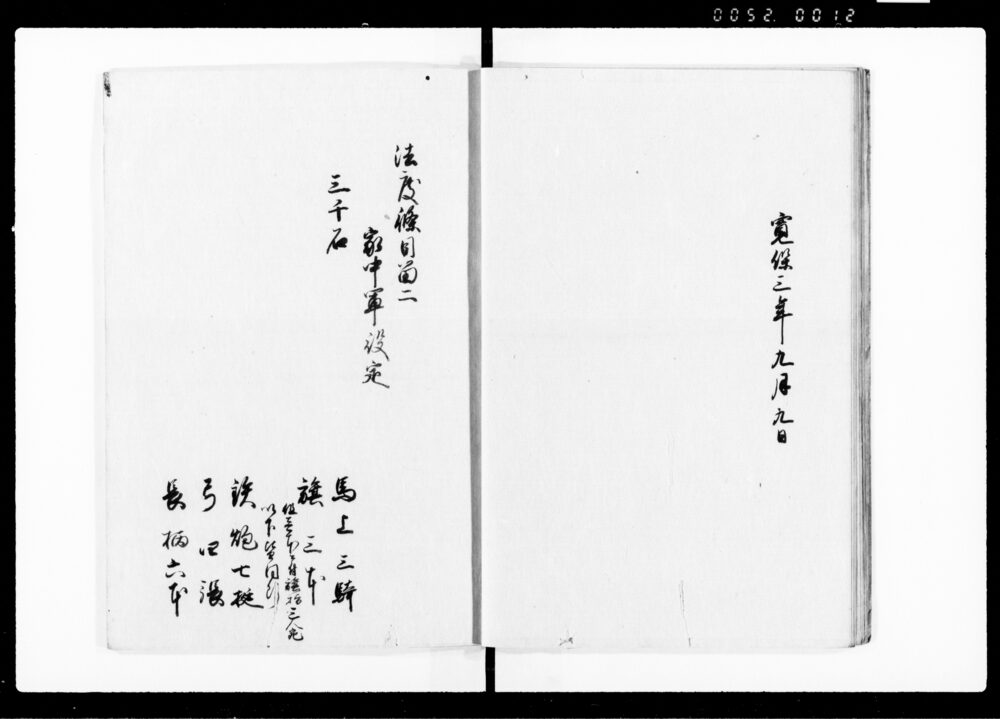 0052. 0012
寛保三年九月九日
法度條目茴二
家中軍役定
三千石
馬上三騎
旗三本
但壱本ニ付旗指三人宛
以下皆同例
鉄炮七挺
弓四張
長柄六本